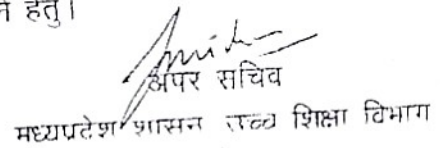 हेतु।
अपर सचिव
मध्यप्रदेश शासन उच्च शिक्षा विभाग